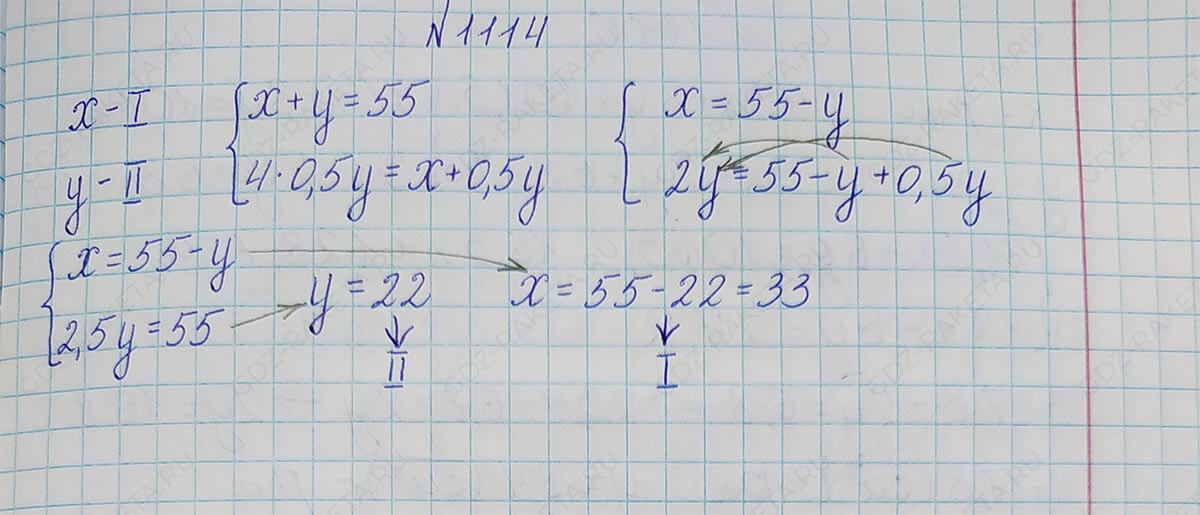 №1114
x - I
y - II
{ x + y = 55
4 · 0,5y = x + 0,5y
{ x = 55 - y
2y = 55 - y + 0,5y
{ x = 55 - y
2,5y = 55
y = 22
II
x = 55 - 22 = 33
I
GDZ-RAKETA.RU